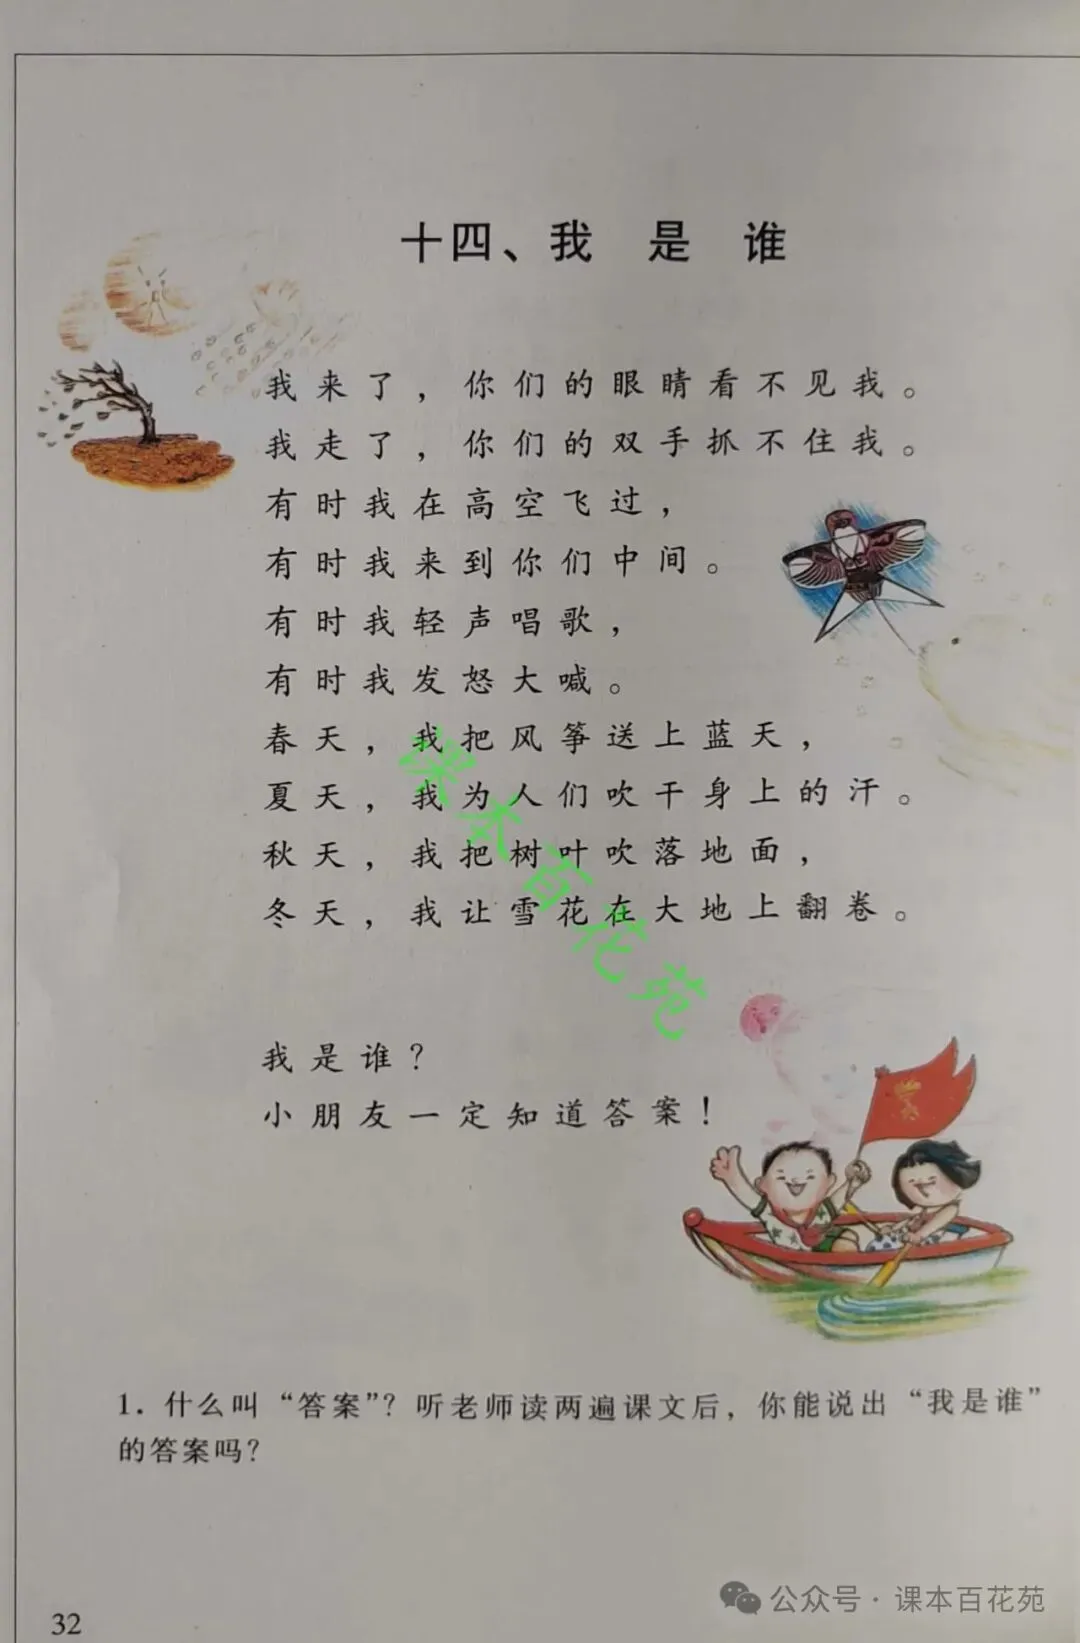 十四、我 是 谁
我来了，你们的眼睛看不见我。
我走了，你们的双手抓不住我。
有时我在高空飞过，
有时我来到你们中间。
有时我轻声唱歌，
有时我发怒大喊。
春天，我把风筝送上蓝天，
夏天，我为人们吹干身上的汗。
秋天，我把树叶吹落地面，
冬天，我让雪花在大地上翻卷。
课本百花苑
我是谁？
小朋友一定知道答案！
1. 什么叫“答案”？听老师读两遍课文后，你能说出“我是谁”
的答案吗？
公众号·课本百花苑
32